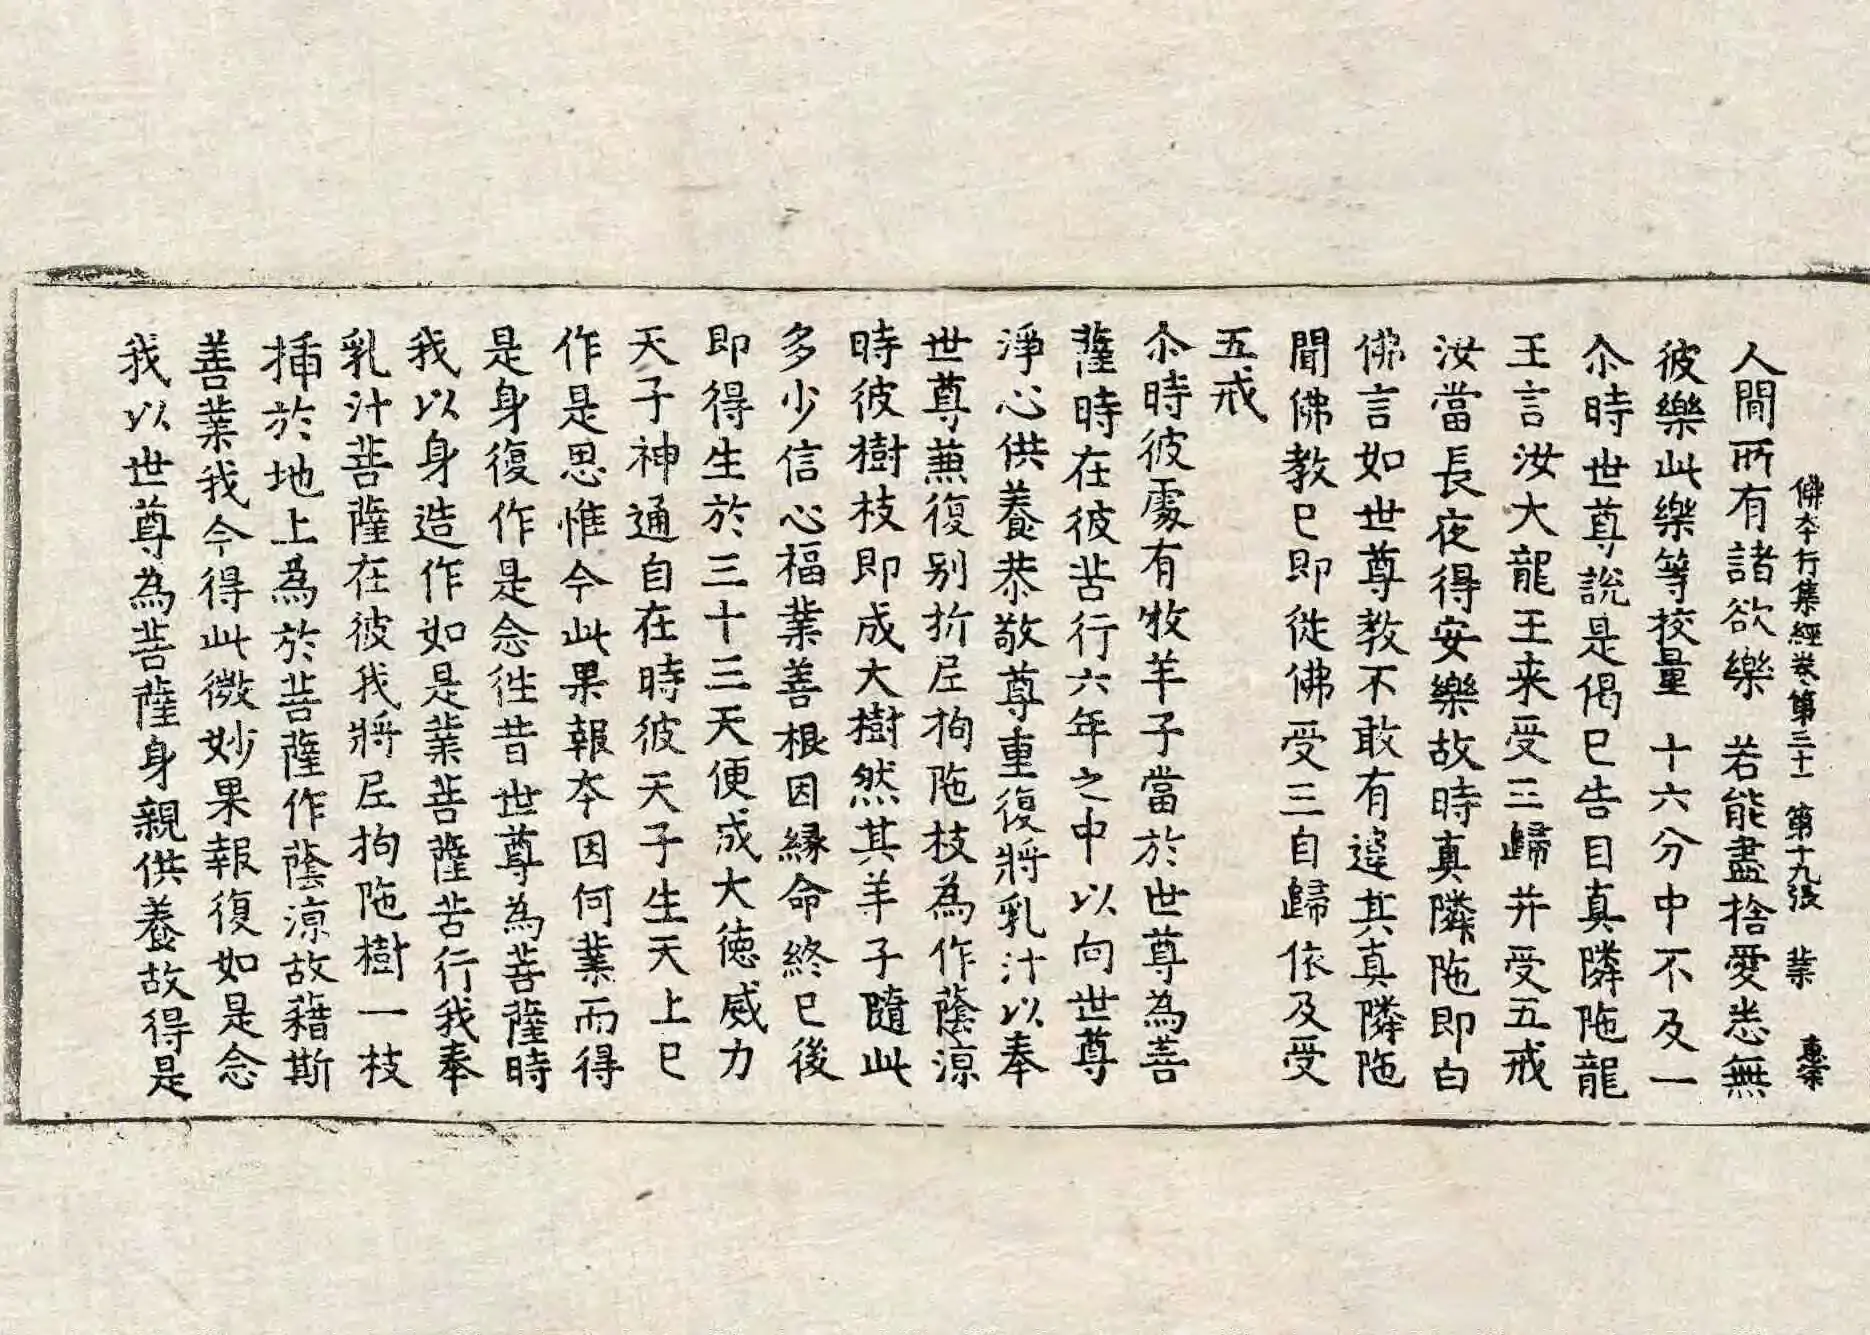 佛本行集經卷第三十一 第十九張 業
人間所有諸欲樂 若能盡捨愛恚無
彼樂此樂等校量 十六分中不及一
尒時世尊說是偈已告目真隣陁龍
王言汝大龍王来受三歸并受五戒
汝當長夜得安樂故時真隣陁即白
佛言如世尊教不敢有違其真隣陁
聞佛教已即從佛受三自歸依及受
五戒
尒時彼處有牧羊子當於世尊為菩
薩時在彼苦行六年之中以向世尊
淨心供養恭敬尊重復將乳汁以奉
世尊蕪復别折𡰱拘陁枝為作蔭涼
時彼樹枝即成大樹然其羊子隨此
多少信心福業善根因縁命終已後
即得生於三十三天便成大徳威力
天子神通自在時彼天子生天上已
作是思惟今此果報夲因何業而得
是身復作是念徃昔世尊為菩薩時
我以身造作如是業菩薩苦行我奉
乳汁菩薩在彼我將𡰱拘陁樹一枝
插於地上爲於菩薩作蔭涼故藉斯
善業我今得此微妙果報復如是念
我以世尊為菩薩身親供養故得是